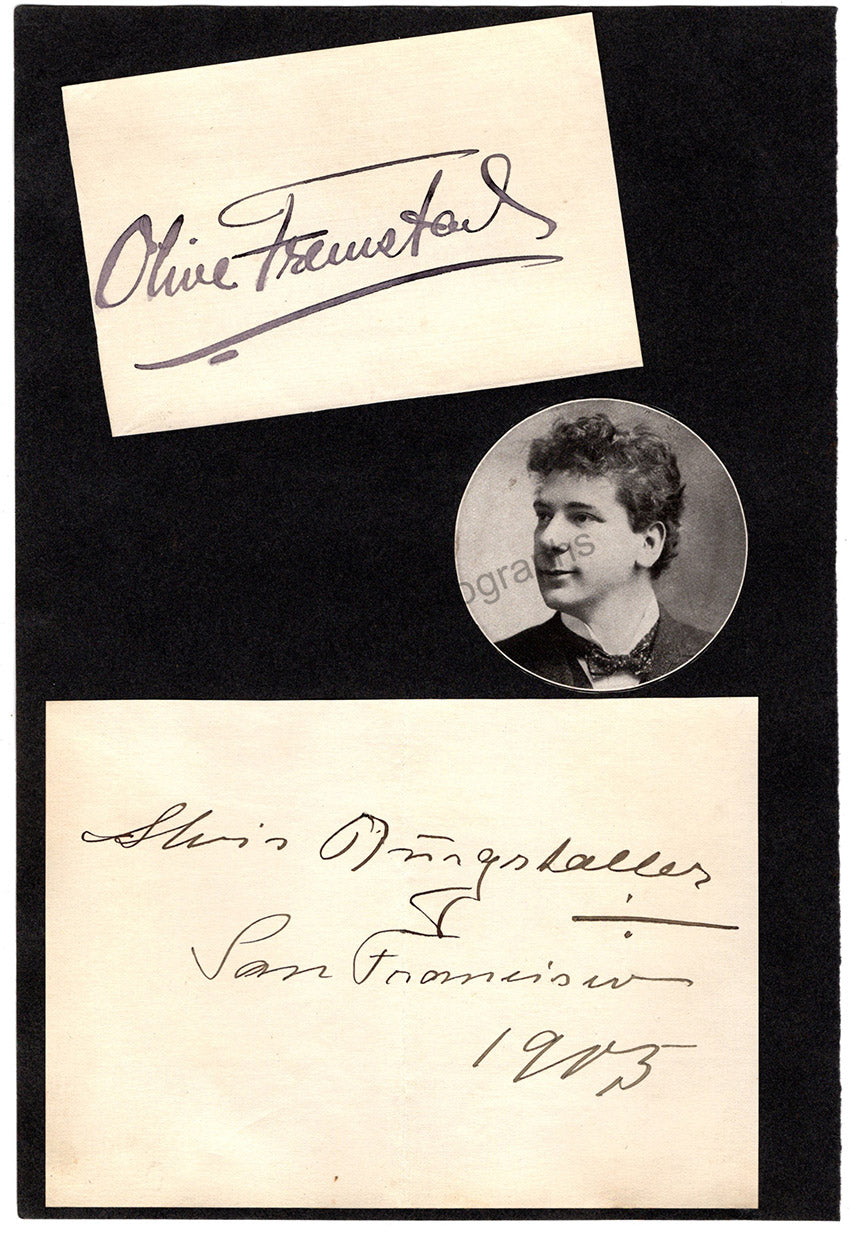 Olive Fremstad
ographs
Alois Burgstaller
San Francisco
1905